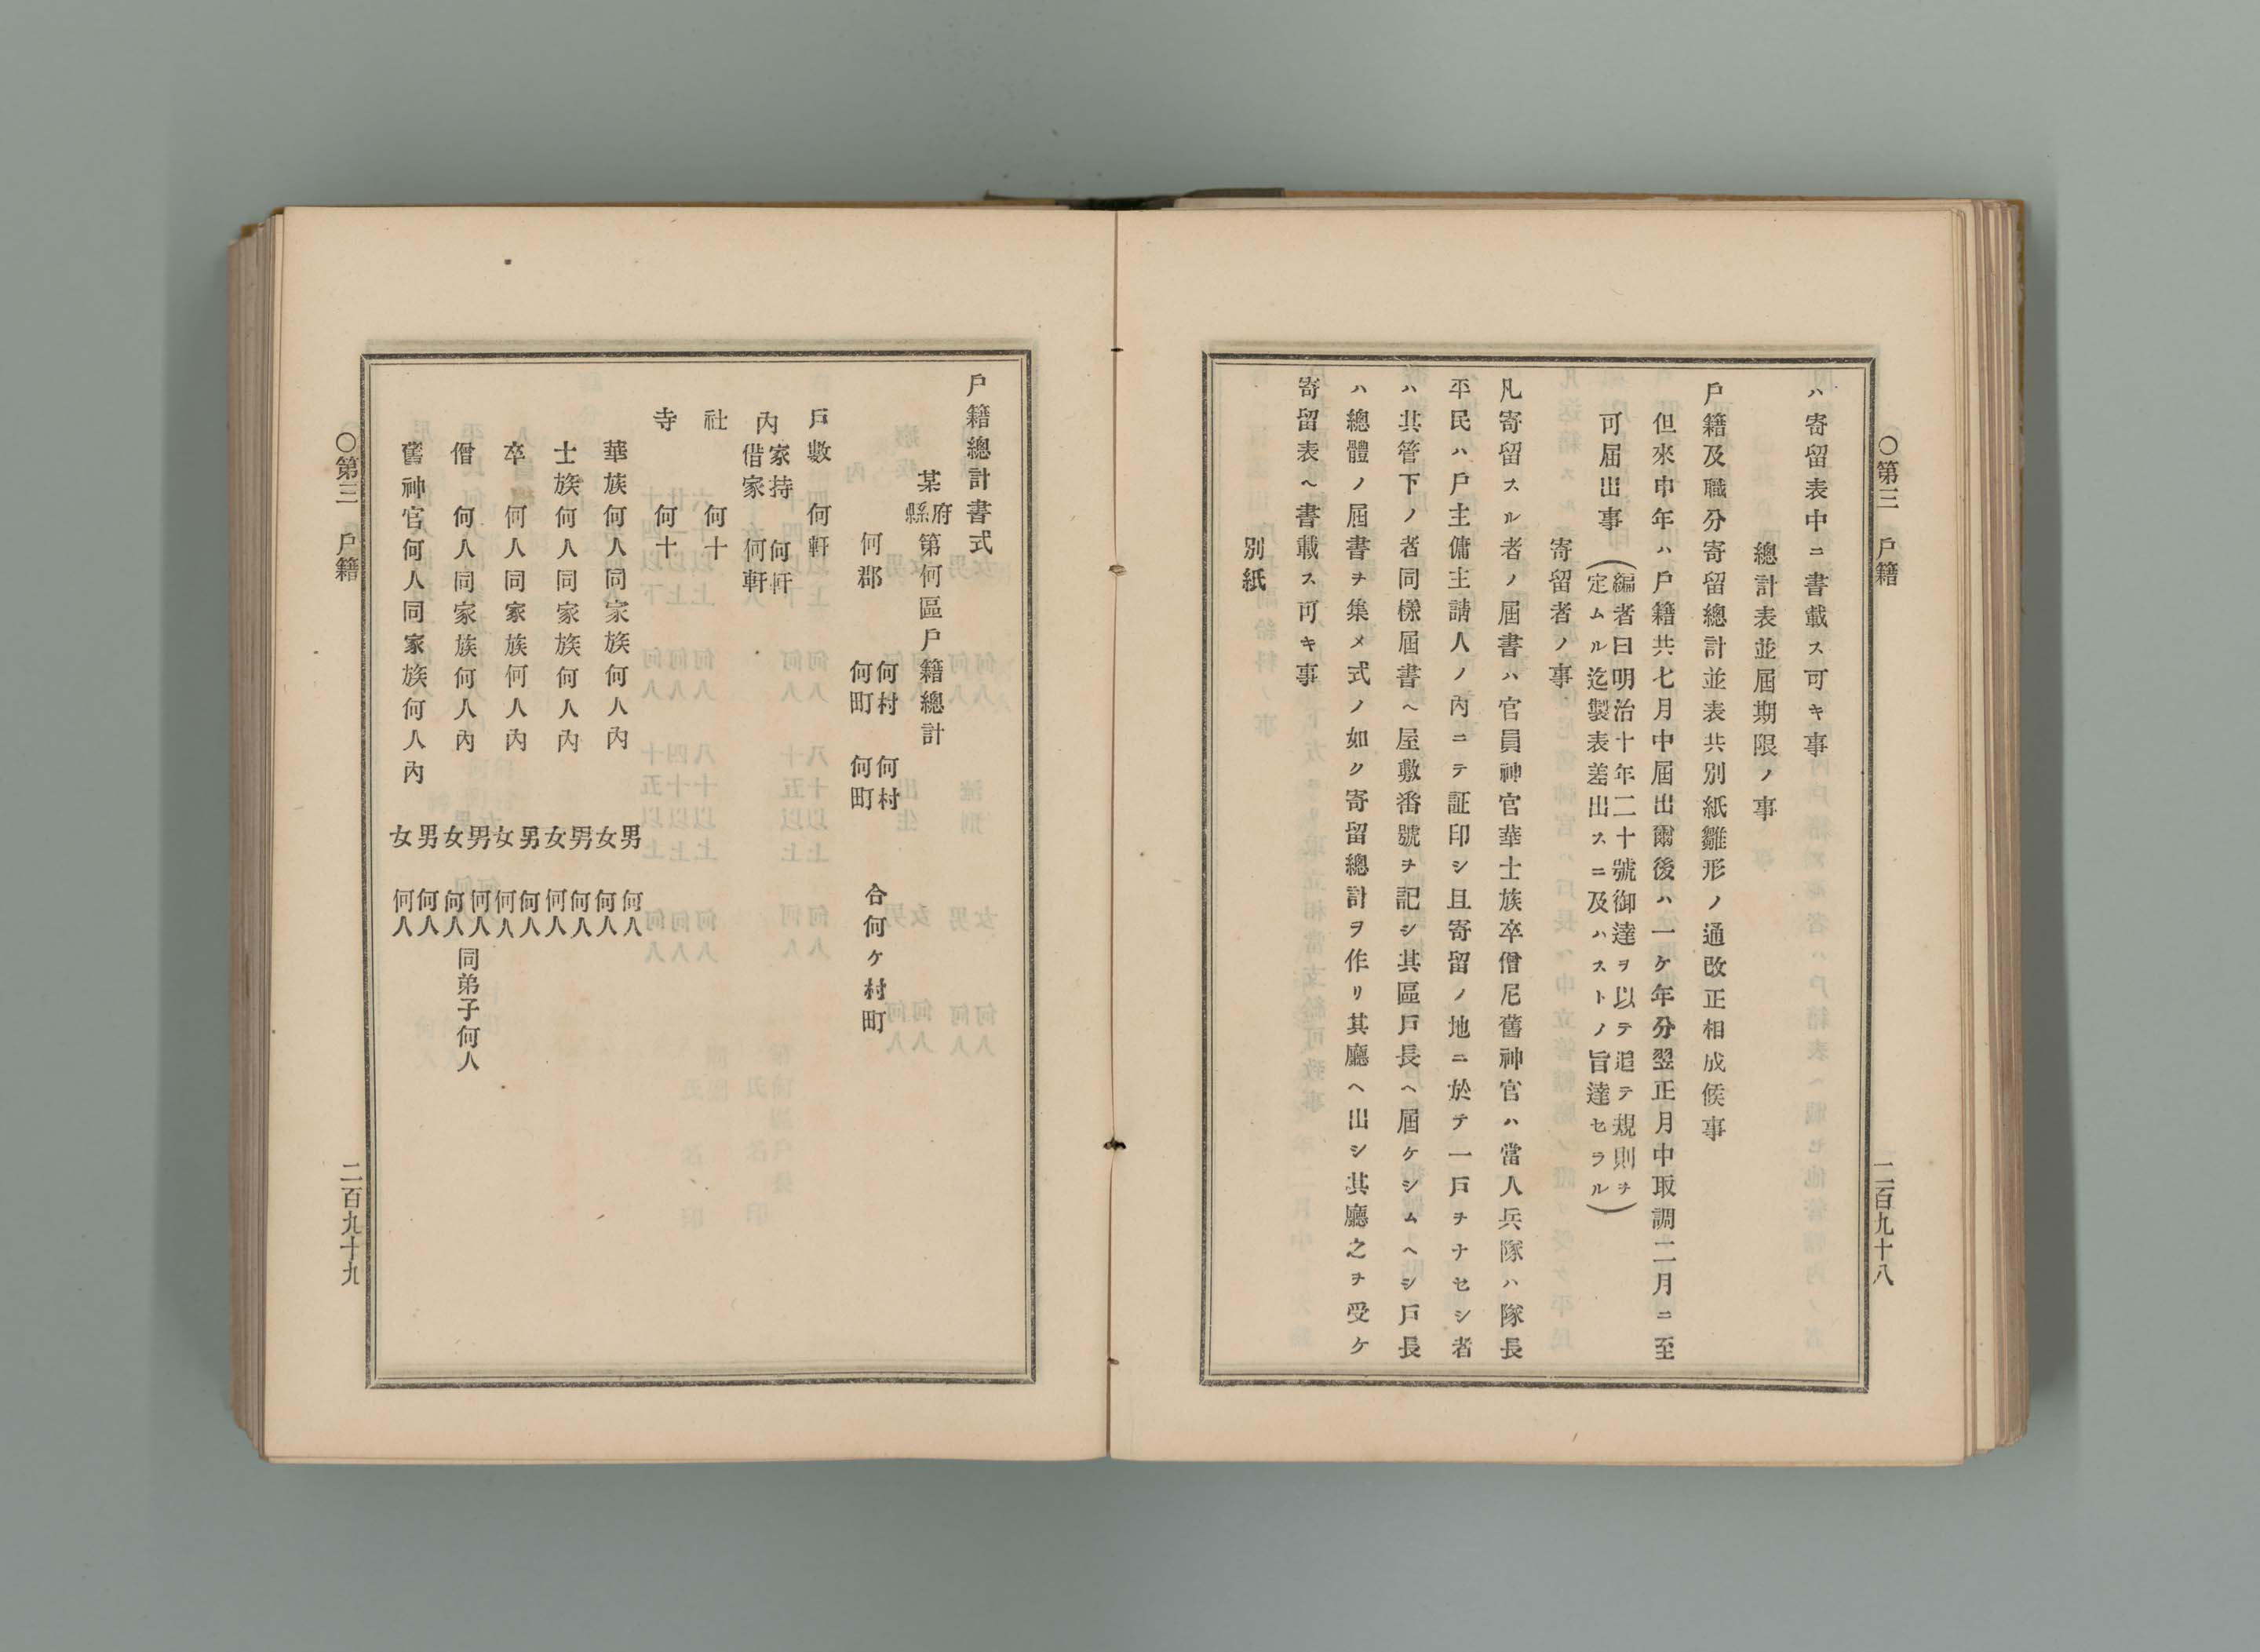 〇第三　戸籍　二百九十八
ハ寄留表中ニ書載ス可キ事
總計表並屆期限ノ事
戸籍及職分寄留總計並表共別紙雛形ノ通改正相成候事
但來申年ハ戸籍共七月中屆出爾後ハ一ケ年分翌正月中取調二月ニ至
可屆出事
(編者曰明治十年二十號御達ヲ以テ追テ規則ヲ
定ムル迄製表差出スニ及ハストノ旨達セラル)
寄留者ノ事
凡寄留スル者ノ屆書ハ官員神官華士族卒僧尼舊神官ハ當人兵隊ハ隊長
平民ハ戸主傭主請人ノ内ニテ証印シ且寄留ノ地ニ於テ一戸ヲナセシ者
ハ其管下ノ者同樣屆書ヘ屋敷番號ヲ記シ其區戸長ヘ屆ケシムヘシ戸長
ハ總體ノ屆書ヲ集メ式ノ如ク寄留總計ヲ作リ其廳ヘ出シ其廳之ヲ受ケ
寄留表ヘ書載ス可キ事
別紙
戸籍總計書式
某府縣第何區戸籍總計
何郡　何村　何村
何町　何町　合何ケ村町
戸數　何軒
内　家持　何軒
借家　何軒
社　何十
寺　何十
華族何人同家族何人内　男　何人
女　何人
士族何人同家族何人内　男　何人
女　何人
卒　何人同家族何人内　男　何人
女　何人
僧　何人同家族何人内　男　何人
女　何人　同弟子何人
舊神官何人同家族何人内　男　何人
女　何人
〇第三　戸籍　二百九十九